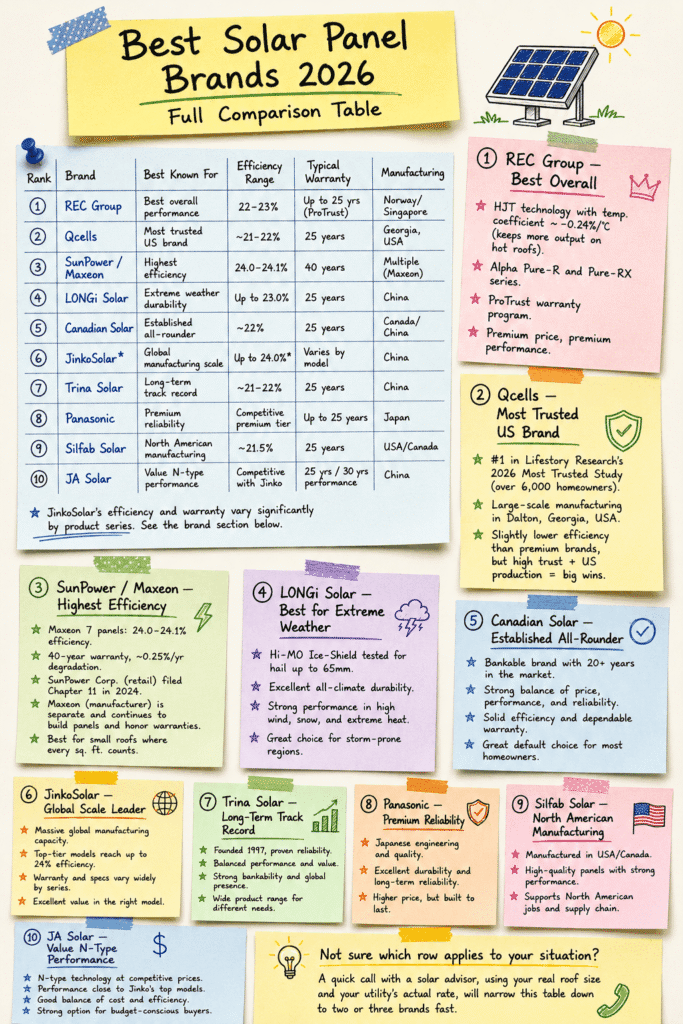 Best Solar Panel
Brands 2026
Full Comparison Table
Rank Brand Best Known For Efficiency Range Typical Warranty Manufacturing
1 REC Group Best overall performance 22–23% Up to 25 yrs (ProTrust) Norway/ Singapore
2 Qcells Most trusted US brand ~21–22% 25 years Georgia, USA
3 SunPower / Maxeon Highest efficiency 24.0–24.1% 40 years Multiple (Maxeon)
4 LONGi Solar Extreme weather durability Up to 23.0% 25 years China
5 Canadian Solar Established all-rounder ~22% 25 years Canada/ China
6 JinkoSolar* Global manufacturing scale Up to 24.0%* Varies by model China
7 Trina Solar Long-term track record ~21–22% 25 years China
8 Panasonic Premium reliability Competitive premium tier Up to 25 years Japan
9 Silfab Solar North American manufacturing ~21.5% 25 years USA/Canada
10 JA Solar Value N-type performance Competitive with Jinko 25 yrs / 30 yrs performance China
★ JinkoSolar's efficiency and warranty vary significantly
by product series. See the brand section below.
1 REC Group —
Best Overall
★ HJT technology with temp.
coefficient ~ -0.24%/°C
(keeps more output on
hot roofs).
★ Alpha Pure-R and Pure-RX
series.
★ ProTrust warranty
program.
★ Premium price, premium
performance.
2 Qcells —
Most Trusted
US Brand
★ #1 in Lifestory Research's
2026 Most Trusted Study
(over 6,000 homeowners).
★ Large-scale manufacturing
in Dalton, Georgia, USA.
★ Slightly lower efficiency
than premium brands,
but high trust + US
production = big wins.
3 SunPower / Maxeon —
Highest Efficiency
★ Maxeon 7 panels: 24.0–24.1%
efficiency.
★ 40-year warranty, ~0.25%/yr
degradation.
★ SunPower Corp. (retail) filed
Chapter 11 in 2024.
★ Maxeon (manufacturer) is
separate and continues to
build panels and honor warranties.
★ Best for small roofs where
every sq. ft. counts.
4 LONGi Solar —
Best for Extreme
Weather
★ Hi-MO Ice-Shield tested for
hail up to 65mm.
★ Excellent all-climate durability.
★ Strong performance in high
wind, snow, and extreme heat.
★ Great choice for storm-prone
regions.
5 Canadian Solar —
Established All-Rounder
★ Bankable brand with 20+ years
in the market.
★ Strong balance of price,
performance, and reliability.
★ Solid efficiency and dependable
warranty.
★ Great default choice for most
homeowners.
6 JinkoSolar —
Global Scale Leader
★ Massive global manufacturing
capacity.
★ Top-tier models reach up to
24% efficiency.
★ Warranty and specs vary widely
by series.
★ Excellent value in the right model.
7 Trina Solar —
Long-Term Track
Record
★ Founded 1997, proven reliability.
★ Balanced performance and value.
★ Strong bankability and global
presence.
★ Wide product range for
different needs.
8 Panasonic —
Premium Reliability
★ Japanese engineering
and quality.
★ Excellent durability and
long-term reliability.
★ Higher price, but built to
last.
9 Silfab Solar —
North American
Manufacturing
★ Manufactured in USA/Canada.
★ High-quality panels with strong
performance.
★ Supports North American
jobs and supply chain.
10 JA Solar —
Value N-Type
Performance
$
★ N-type technology at competitive prices.
★ Performance close to Jinko's top models.
★ Good balance of cost and efficiency.
★ Strong option for budget-conscious buyers.
Not sure which row applies to your situation?
A quick call with a solar advisor, using your real roof size
and your utility's actual rate, will narrow this table down
to two or three brands fast.